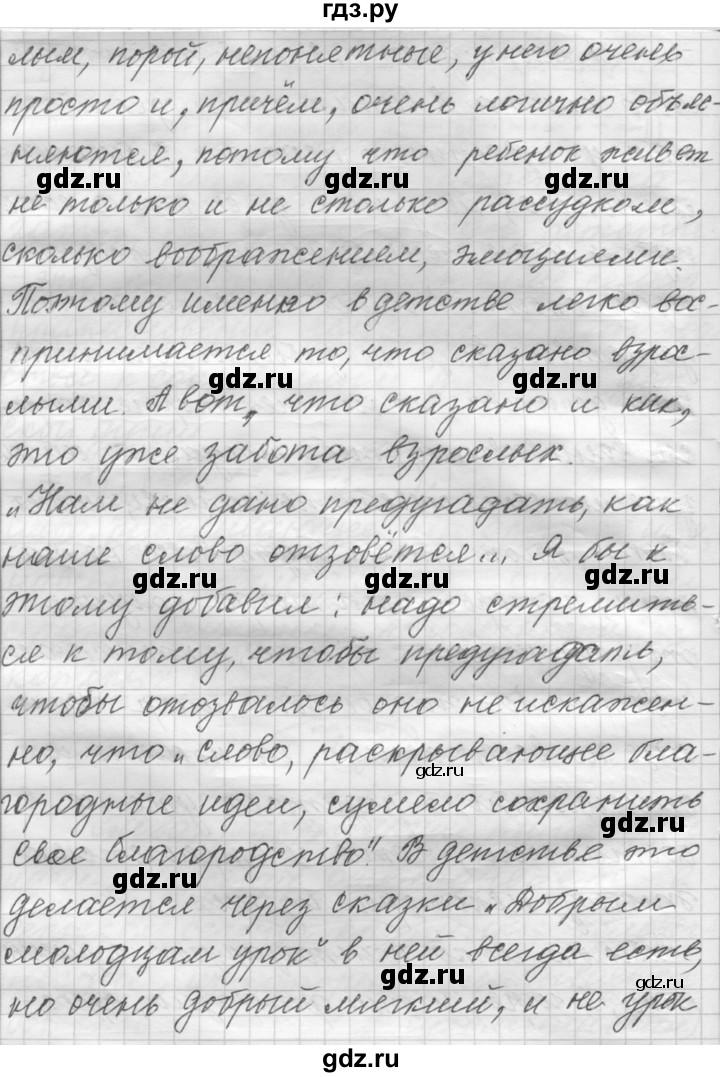 гдз.ру
лым, порой, непонятные, у него очень
просто и, причём, очень логично объяс-
няются, потому что ребенок живет
gdz.ru gdz.ru gdz.ru
не только и не столько рассудком,
сколько воображением, эмоциями.
Потому именно в детстве легко вос-
принимается то, что сказано взрос-
gdz.ru gdz.ru
лыми. А вот, что сказано и как,
это уже забота взрослых.
„Нам не дано предугадать, как
наше слово отзовётся... Я бы к
gdz.ru gdz.ru gdz.ru
этому добавил: надо стремить-
ся к тому, чтобы предугадать,
чтобы отозвалось оно не искажен-
но, что „слово, раскрывающее бла-
gdz.ru
городные идеи, сумело сохранить
gdz.ru
свое благородство“. В детстве это
gdz.ru
делается через сказки „Добрым
молодцам урок“ в ней всегда есть,
gdz.ru gdz.ru
но очень добрый мягкий, и не урок
gdz.ru